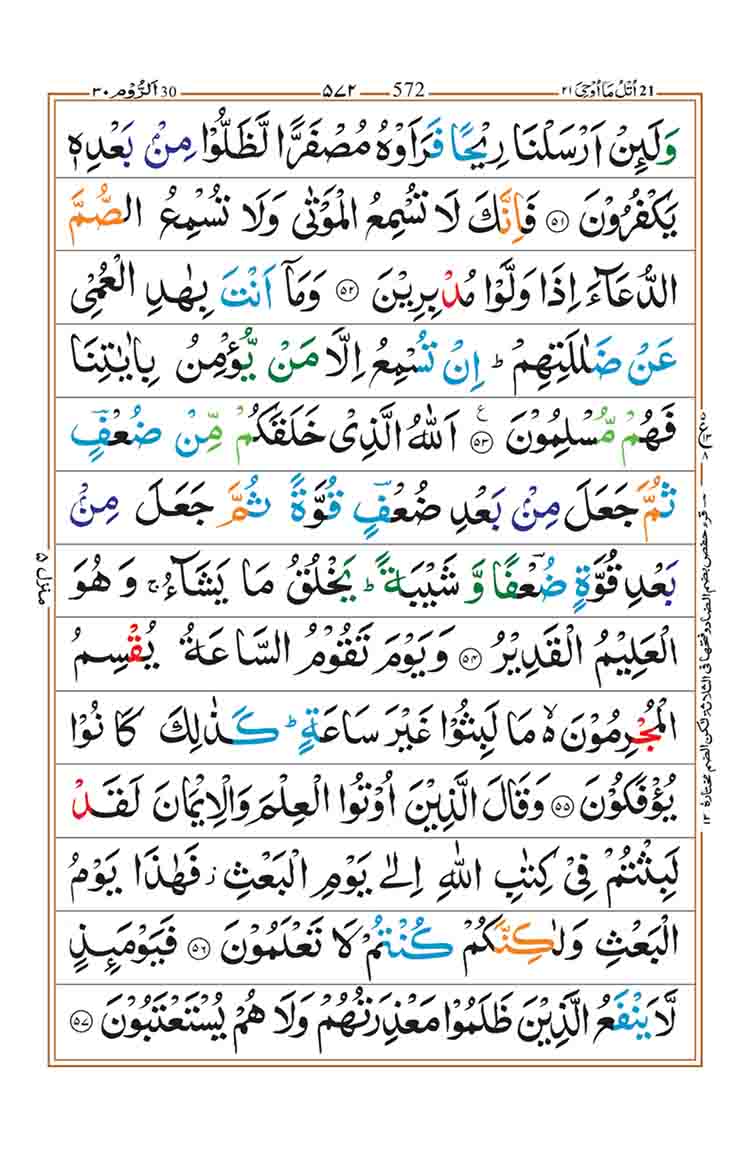 اَلرُّوْم ٣٠ 30
٥٧٢ 572
اُتْلُ مَا اُوْحِیَ ٢١ 21
وَلَىِٕنْ اَرْسَلْنَا رِیْحًا فَرَاَوْهُ مُصْفَرًّا لَّظَلُّوْا مِنْۢ بَعْدِهٖ
یَكْفُرُوْنَ ۝٥١ فَاِنَّكَ لَا تُسْمِعُ الْمَوْتٰی وَلَا تُسْمِعُ الصُّمَّ
الدُّعَآءَ اِذَا وَلَّوْا مُدْبِرِیْنَ ۝٥٢ وَمَاۤ اَنْتَ بِهٰدِ الْعُمْیِ
عَنْ ضَلٰلَتِهِمْ ؕ اِنْ تُسْمِعُ اِلَّا مَنْ یُّؤْمِنُ بِاٰیٰتِنَا
فَهُمْ مُّسْلِمُوْنَ ۝٥٣ ع اَللّٰهُ الَّذِیْ خَلَقَكُمْ مِّنْ ضُعْفٍ
ثُمَّ جَعَلَ مِنْۢ بَعْدِ ضُعْفٍ قُوَّةً ثُمَّ جَعَلَ مِنْۢ
بَعْدِ قُوَّةٍ ضُعْفًا وَّ شَیْبَةً ؕ یَخْلُقُ مَا یَشَآءُ ۚ وَ هُوَ
الْعَلِیْمُ الْقَدِیْرُ ۝٥٤ وَیَوْمَ تَقُوْمُ السَّاعَةُ یُقْسِمُ
الْمُجْرِمُوْنَ ۙ مَا لَبِثُوْا غَیْرَ سَاعَةٍ ؕ كَذٰلِكَ كَانُوْا
یُؤْفَكُوْنَ ۝٥٥ وَقَالَ الَّذِیْنَ اُوْتُوا الْعِلْمَ وَالْاِیْمَانَ لَقَدْ
لَبِثْتُمْ فِیْ كِتٰبِ اللّٰهِ اِلٰی یَوْمِ الْبَعْثِ ؗ فَهٰذَا یَوْمُ
الْبَعْثِ وَلٰكِنَّكُمْ كُنْتُمْ لَا تَعْلَمُوْنَ ۝٥٦ فَیَوْمَىِٕذٍ
لَّا یَنْفَعُ الَّذِیْنَ ظَلَمُوْا مَعْذِرَتُهُمْ وَلَا هُمْ یُسْتَعْتَبُوْنَ ۝٥٧
منزل ٥
قرء حفص بضم الضاد وفتحها فی الثلاثة لكن الضم مختارة ١٢